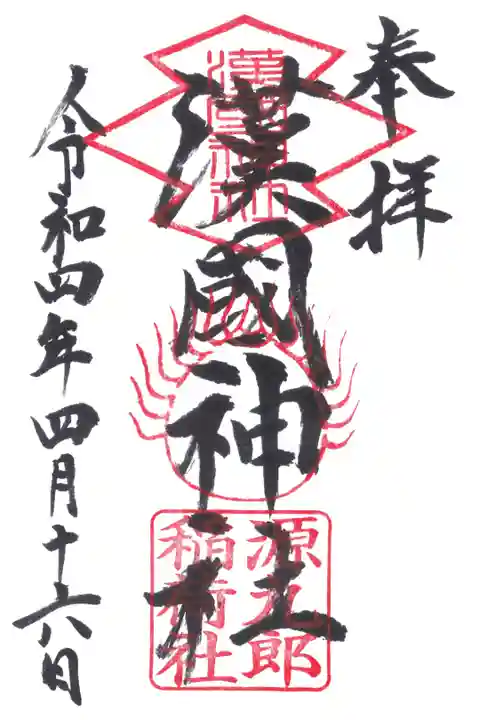 奉拝
漢國神社
漢国神社
源九郎
稲荷社
令和四年四月十六日